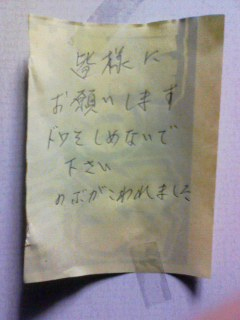 皆様に
お願いします
ドアをしめないで
下さい
ノブがこわれました